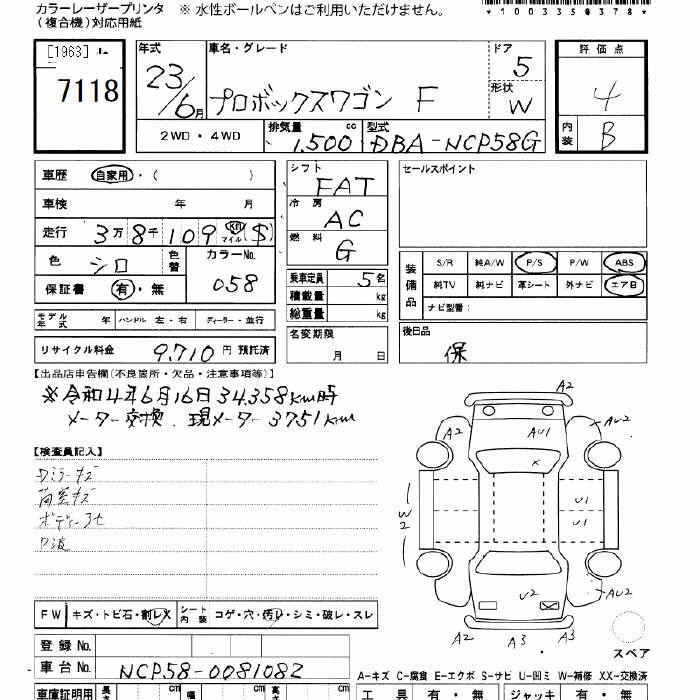 カラーレーザープリンタ
(複合機)対応用紙
※ 水性ボールペンはご利用いただけません。
*1003350378*
[1963]
7118
年式
23/6月
車名・グレード
プロボックスワゴン F
ドア
5
形状
W
2WD・4WD
排気量
1,500 cc
型式
DBA-NCP58G
評価点
4
内装
B
車歴 自家用・( )
車検 年 月
走行 3万8千109 km マイル ($)
色 シロ 色替
カラーNo. 058
保証書 有・無
シフト
FAT
冷房
AC
燃料
G
乗車定員 5名
積載量 kg
総重量 kg
名変期限
月 日
セールスポイント
装備品
S/R 純A/W P/S P/W ABS
純TV 純ナビ 革シート 外ナビ エアB
ナビ型番：
後日品
保
モデル年式 年 ハンドル 左・右 ディーラー・並行
リサイクル料金 9,710 円 預託済
【出品店申告欄(不良箇所・欠品・注意事項等)】
※令和4年6月16日34,358km時
メーター交換．現メーター3751km
【検査員記入】
Dミラーキズ
荷室キズ
ボディー
FW キズ・トビ石・割レX
シート内装 コゲ・穴・汚レ・シミ・破レ・スレ
A2
A2
AU1
AU2
X
W2
U1
U1
U2
AU2
A2
A3
A3
スペア
登録No.
車台No. NCP58-0081082
A-キズ C-腐食 E-エクボ S-サビ U-凹ミ W-補修 XX-交換済
車庫証明用 長さ cm 幅 cm 高さ cm
工具 有・無 ジャッキ 有・無